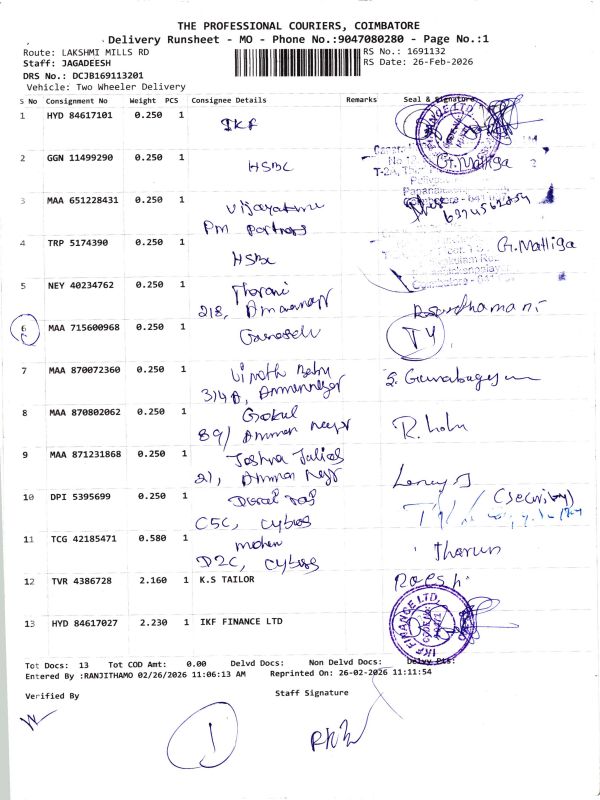 THE PROFESSIONAL COURIERS, COIMBATORE
Delivery Runsheet - MO - Phone No.:9047080280 - Page No.:1
Route: LAKSHMI MILLS RD
RS No.: 1691132
Staff: JAGADEESH
RS Date: 26-Feb-2026
DRS No.: DCJB169113201
Vehicle: Two Wheeler Delivery
S No Consignment No Weight PCS Consignee Details Remarks Seal & Signature
1 HYD 84617101 0.250 1 IKF
2 GGN 11499290 0.250 1 HSBC G. Malliga
3 MAA 651228431 0.250 1
Pm partners
4 TRP 5174390 0.250 1 HSBC G. Malliga
5 NEY 40234762 0.250 1 Tharani
218,
6 MAA 715600968 0.250 1 Ganesh
7 MAA 870072360 0.250 1 Vinoth Baby
314B, Ammannagar
8 MAA 870802062 0.250 1 Gokul
89/ Amman
9 MAA 871231868 0.250 1 Joshua
21, Amman
10 DPI 5395699 0.250 1 (Security)
C5C, Cybros
11 TCG 42185471 0.580 1 mohan Tharun
D2C, Cybros
12 TVR 4386728 2.160 1 K.S TAILOR
13 HYD 84617027 2.230 1 IKF FINANCE LTD
IKF FINANCE LTD.
Tot Docs: 13 Tot COD Amt: 0.00 Delvd Docs: Non Delvd Docs: Delvy Pts:
Entered By :RANJITHAMO 02/26/2026 11:06:13 AM Reprinted On: 26-02-2026 11:11:54
Verified By Staff Signature
1